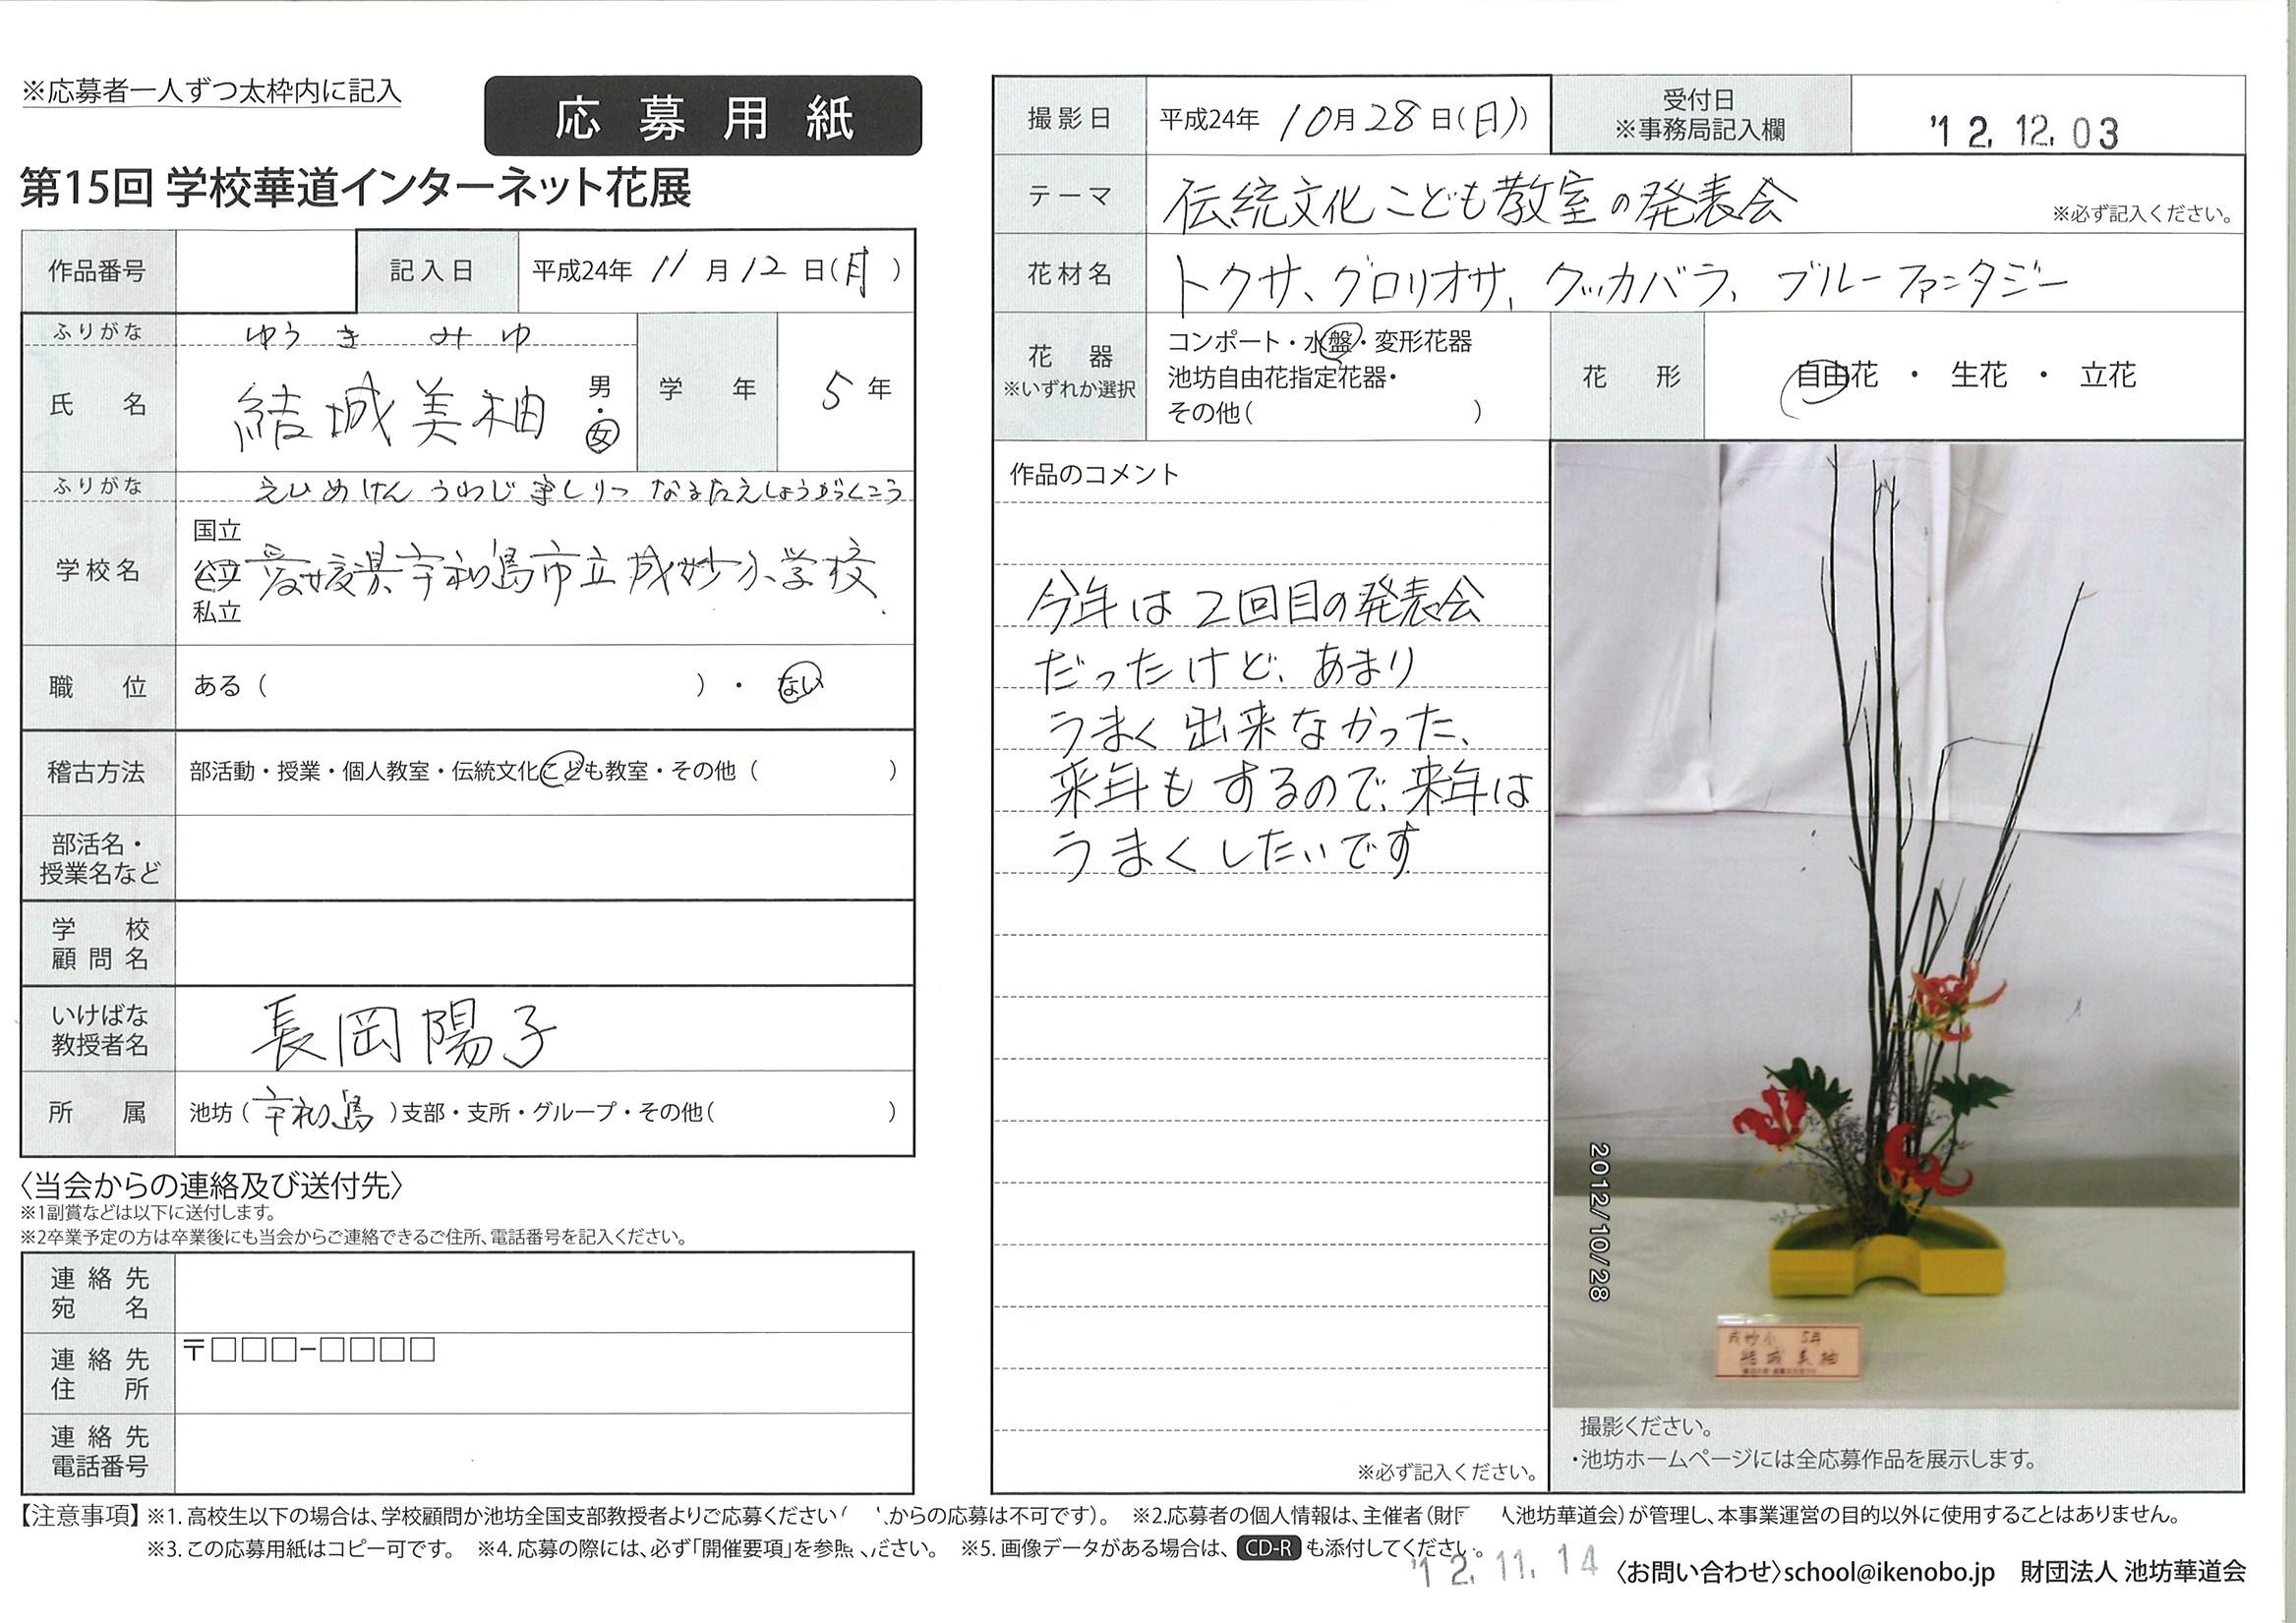 ※応募者一人ずつ太枠内に記入
応募用紙
第15回 学校華道インターネット花展
作品番号
記入日 平成24年 11月12日(月)
ふりがな ゆうき みゆ
氏名 結城美柚 男・女
学年 5年
ふりがな えひめけん うわじましりつ なるたえしょうがくこう
学校名 国立 公立 私立 愛媛県宇和島市立成妙小学校
職位 ある( )・ない
稽古方法 部活動・授業・個人教室・伝統文化こども教室・その他( )
部活名・
授業名など
学校
顧問名
いけばな
教授者名 長岡陽子
所属 池坊(宇和島)支部・支所・グループ・その他( )
〈当会からの連絡及び送付先〉
※1副賞などは以下に送付します。
※2卒業予定の方は卒業後にも当会からご連絡できるご住所、電話番号を記入ください。
連絡先
宛名
連絡先
住所
〒□□□-□□□□
連絡先
電話番号
撮影日 平成24年 10月28日(日)
受付日
※事務局記入欄
'12.12.03
テーマ 伝統文化こども教室の発表会 ※必ず記入ください。
花材名 トクサ、グロリオサ、クッカバラ、ブルーファンタジー
花器
※いずれか選択
コンポート・水盤・変形花器
池坊自由花指定花器・
その他( )
花形 自由花・生花・立花
作品のコメント
今年は2回目の発表会
だったけど、あまり
うまく出来なかった、
来年もするので、来年は
うまくしたいです
※必ず記入ください。
2012/10/28
成妙小 5年
結城美柚
撮影ください。
・池坊ホームページには全応募作品を展示します。
【注意事項】※1.高校生以下の場合は、学校顧問か池坊全国支部教授者よりご応募ください( からの応募は不可です)。 ※2.応募者の個人情報は、主催者(財 人池坊華道会)が管理し、本事業運営の目的以外に使用することはありません。
※3.この応募用紙はコピー可です。 ※4.応募の際には、必ず「開催要項」を参照ください。 ※5.画像データがある場合は、CD-Rも添付してください。
'12.11.14
〈お問い合わせ〉school@ikenobo.jp 財団法人 池坊華道会